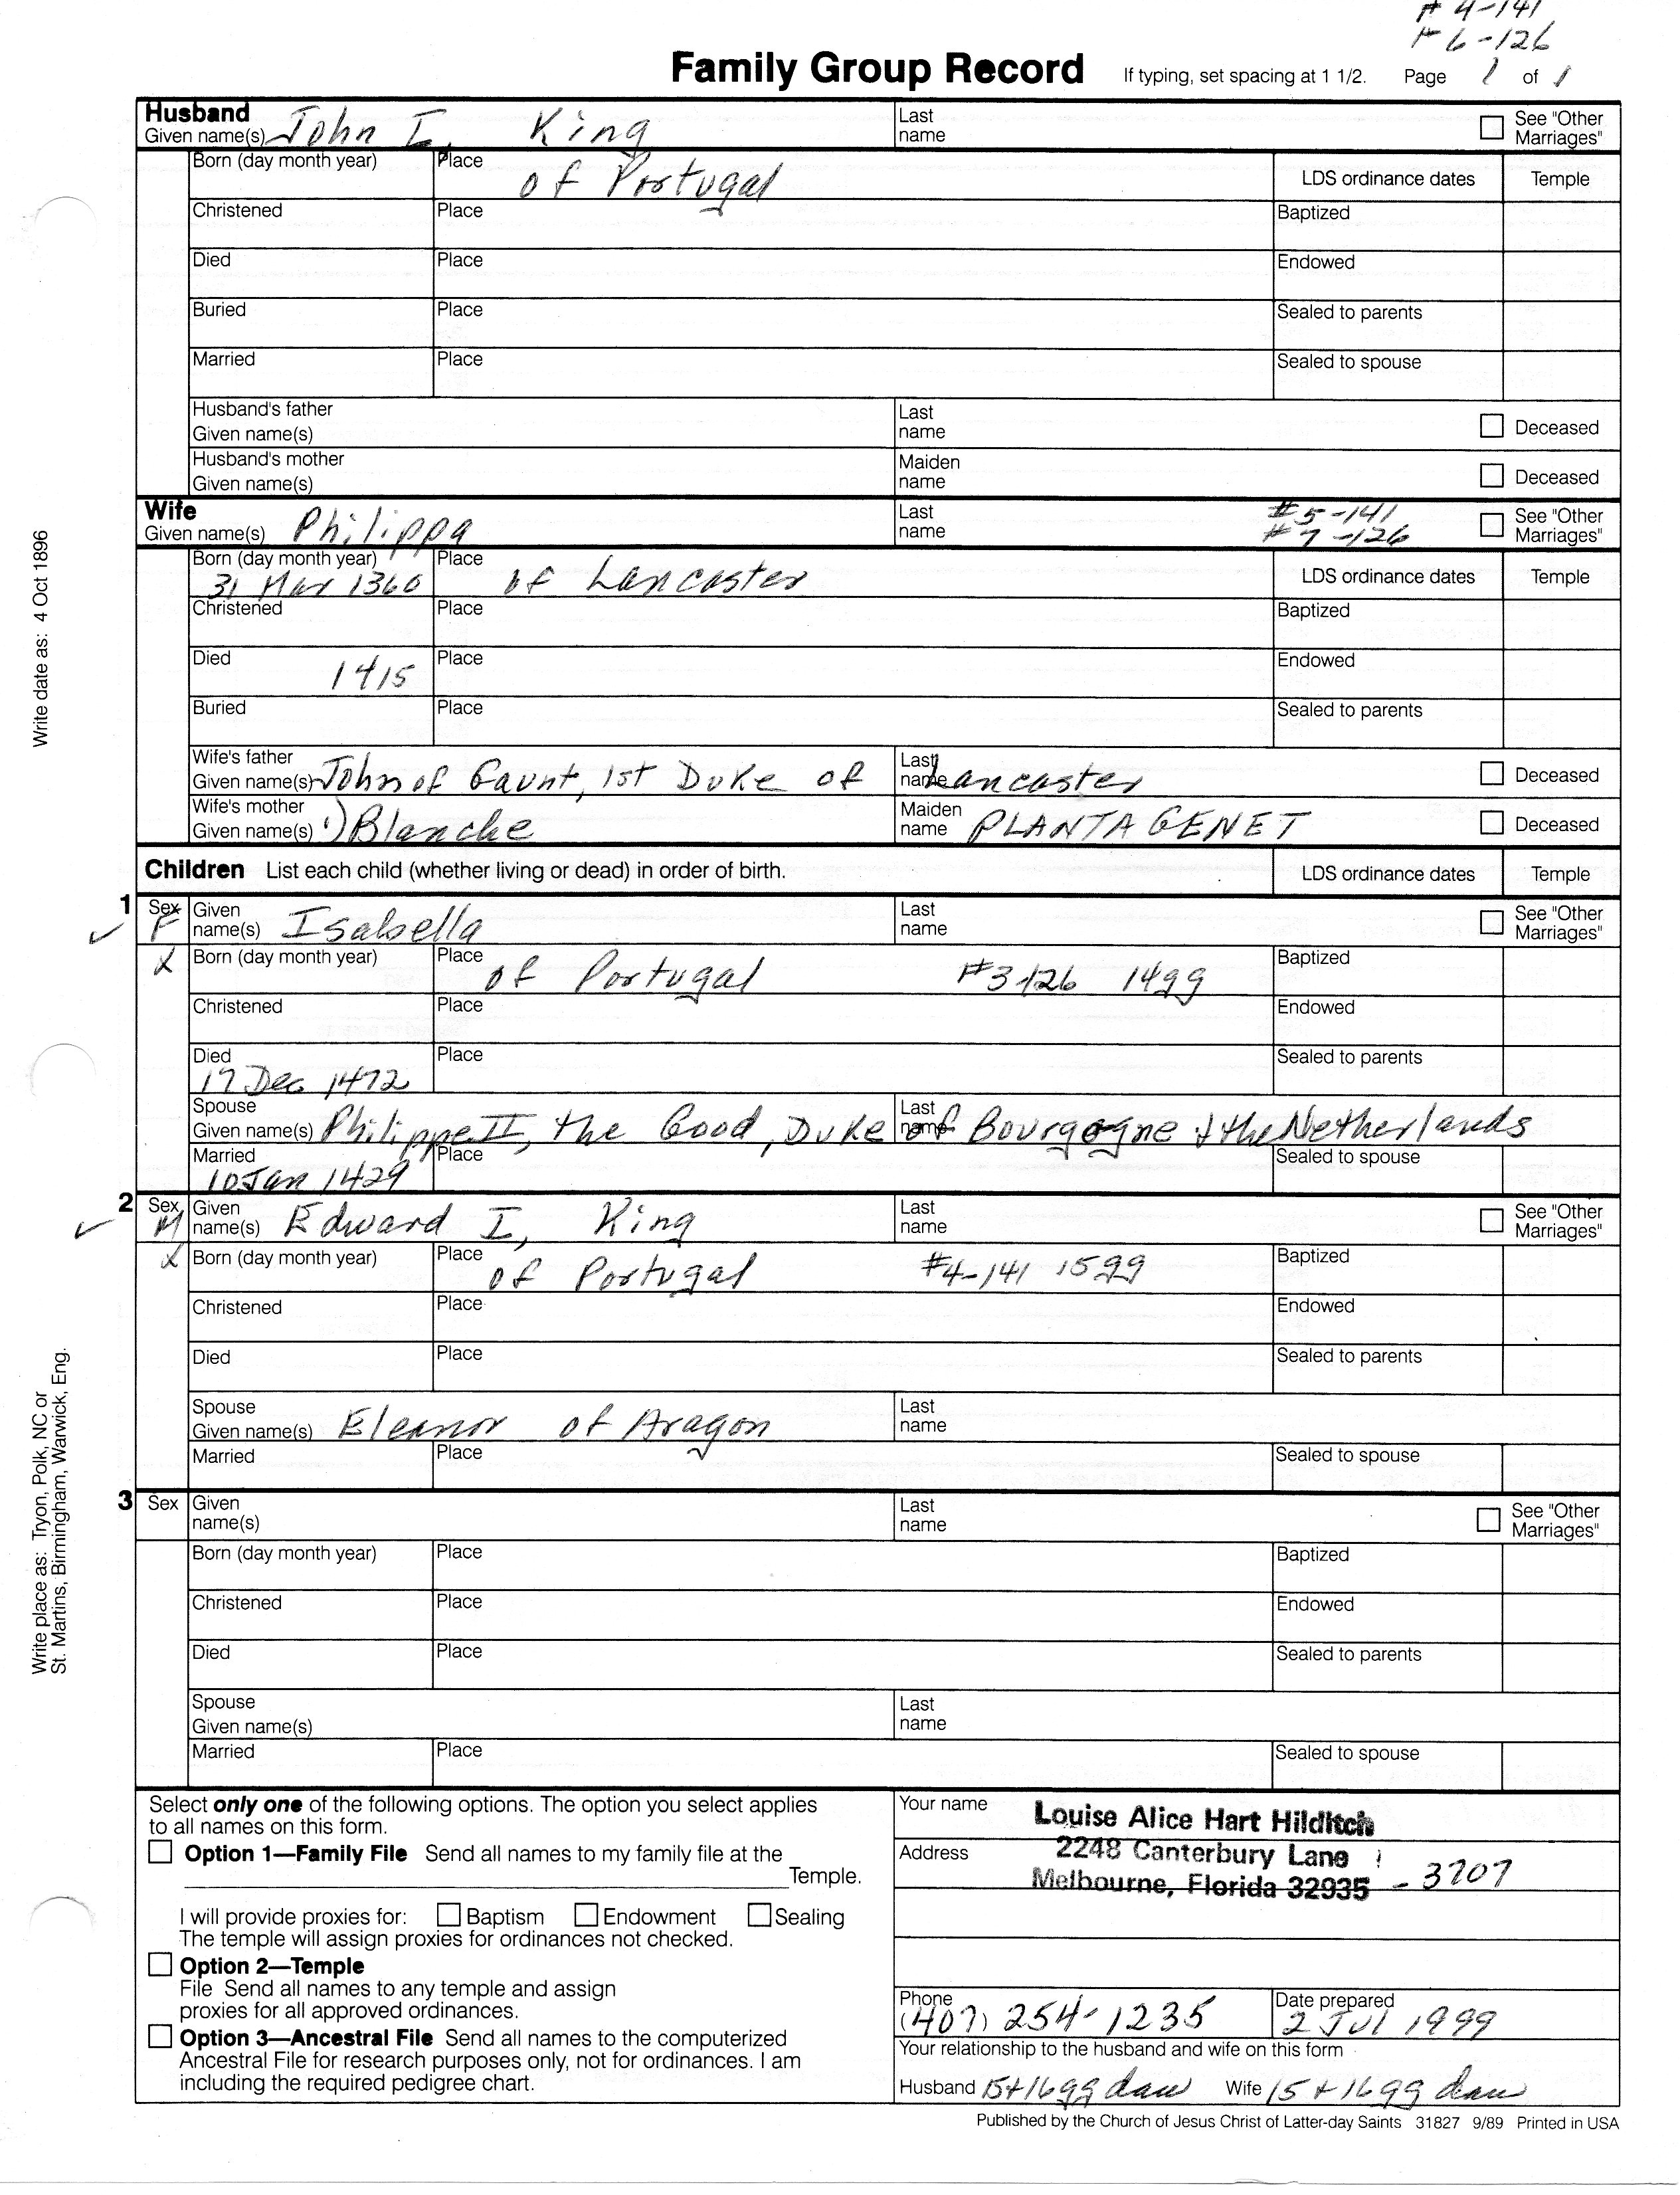 # 4-141
# 6-126
Family Group Record If typing, set spacing at 1 1/2. Page 1 of 1
Husband
Given name(s) John I, King Last name See "Other Marriages"
Born (day month year) Place of Portugal LDS ordinance dates Temple
Christened Place Baptized
Died Place Endowed
Buried Place Sealed to parents
Married Place Sealed to spouse
Husband's father
Given name(s) Last name Deceased
Husband's mother
Given name(s) Maiden name Deceased
Wife
Given name(s) Philippa Last name #5-141 #7-126 See "Other Marriages"
Born (day month year) 31 Mar 1360 Place of Lancaster LDS ordinance dates Temple
Christened Place Baptized
Died 1415 Place Endowed
Buried Place Sealed to parents
Wife's father
Given name(s) John of Gaunt, 1st Duke of Last name Lancaster Deceased
Wife's mother
Given name(s) 1) Blanche Maiden name PLANTAGENET Deceased
Children List each child (whether living or dead) in order of birth. LDS ordinance dates Temple
1 Sex F Given name(s) Isabella Last name See "Other Marriages"
X Born (day month year) Place of Portugal #3-126 14gg Baptized
Christened Place Endowed
Died 17 Dec 1472 Place Sealed to parents
Spouse
Given name(s) Philippe II, the Good, Duke Last name of Bourgogne & the Netherlands
Married 10 Jan 1429 Place Sealed to spouse
2 Sex M Given name(s) Edward I, King Last name See "Other Marriages"
X Born (day month year) Place of Portugal #4-141 15gg Baptized
Christened Place Endowed
Died Place Sealed to parents
Spouse
Given name(s) Eleanor of Aragon Last name
Married Place Sealed to spouse
3 Sex Given name(s) Last name See "Other Marriages"
Born (day month year) Place Baptized
Christened Place Endowed
Died Place Sealed to parents
Spouse
Given name(s) Last name
Married Place Sealed to spouse
Select only one of the following options. The option you select applies
to all names on this form.
Option 1—Family File Send all names to my family file at the
Temple.
I will provide proxies for: Baptism Endowment Sealing
The temple will assign proxies for ordinances not checked.
Option 2—Temple
File Send all names to any temple and assign
proxies for all approved ordinances.
Option 3—Ancestral File Send all names to the computerized
Ancestral File for research purposes only, not for ordinances. I am
including the required pedigree chart.
Your name Louise Alice Hart Hilditch
Address 2248 Canterbury Lane
Melbourne, Florida 32935 - 3707
Phone (407) 254-1235 Date prepared 2 Jul 1999
Your relationship to the husband and wife on this form
Husband 15+16gg dau Wife 15+16gg dau
Published by the Church of Jesus Christ of Latter-day Saints 31827 9/89 Printed in USA
Write date as: 4 Oct 1896
Write place as: Tryon, Polk, NC or
St. Martins, Birmingham, Warwick, Eng.